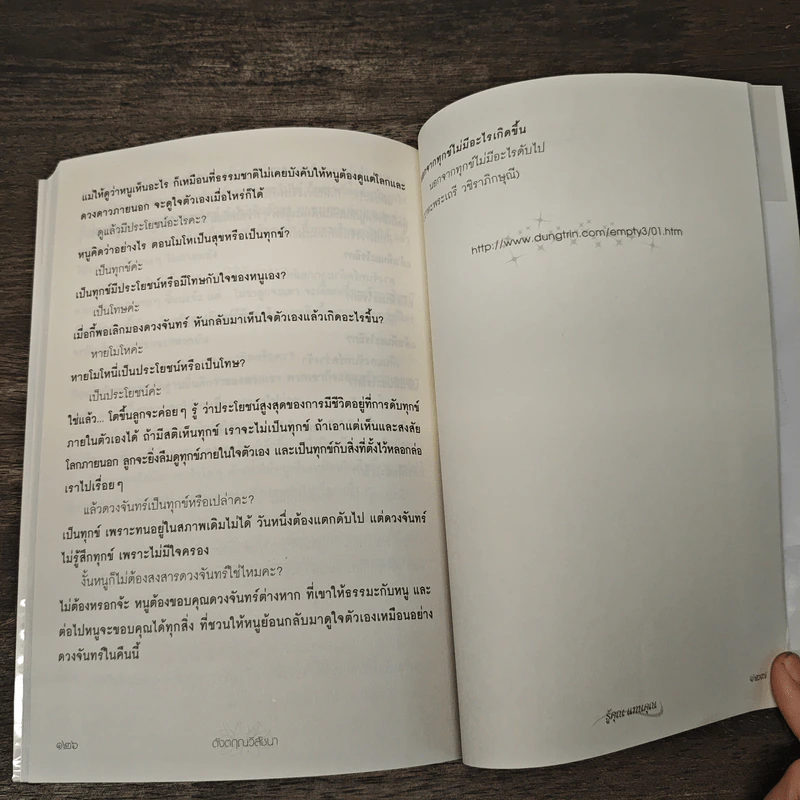 แม่ให้ดูว่าหนูเห็นอะไร ก็เหมือนที่ธรรมชาติไม่เคยบังคับให้หนูต้องดูแต่โลกและ
ดวงดาวภายนอก จะดูใจตัวเองเมื่อไหร่ก็ได้
ดูแล้วมีประโยชน์อะไรคะ?
หนูคิดว่าอย่างไร ตอนโมโหเป็นสุขหรือเป็นทุกข์?
เป็นทุกข์ค่ะ
เป็นทุกข์มีประโยชน์หรือมีโทษกับใจของหนูเอง?
เป็นโทษค่ะ
เมื่อกี้พอเลิกมองดวงจันทร์ หันกลับมาเห็นใจตัวเองแล้วเกิดอะไรขึ้น?
หายโมโหค่ะ
หายโมโหนี่เป็นประโยชน์หรือเป็นโทษ?
เป็นประโยชน์ค่ะ
ใช่แล้ว... โตขึ้นลูกจะค่อยๆ รู้ ว่าประโยชน์สูงสุดของการมีชีวิตอยู่ที่การดับทุกข์
ภายในตัวเองได้ ถ้ามีสติเห็นทุกข์ เราจะไม่เป็นทุกข์ ถ้าเอาแต่เห็นและสงสัย
โลกภายนอก ลูกจะยิ่งลืมดูทุกข์ภายในใจตัวเอง และเป็นทุกข์กับสิ่งที่ตั้งไว้หลอกล่อ
เราไปเรื่อยๆ
แล้วดวงจันทร์เป็นทุกข์หรือเปล่าคะ?
เป็นทุกข์ เพราะทนอยู่ในสภาพเดิมไม่ได้ วันหนึ่งต้องแตกดับไป แต่ดวงจันทร์
ไม่รู้สึกทุกข์ เพราะไม่มีใจครอง
งั้นหนูก็ไม่ต้องสงสารดวงจันทร์ใช่ไหมคะ?
ไม่ต้องหรอกจ้ะ หนูต้องขอบคุณดวงจันทร์ต่างหาก ที่เขาให้ธรรมะกับหนู และ
ต่อไปหนูจะขอบคุณได้ทุกสิ่ง ที่ชวนให้หนูย้อนกลับมาดูใจตัวเองเหมือนอย่าง
ดวงจันทร์ในคืนนี้
๑๒๖
ดังตฤณวิสัชนา
จากทุกข์ไม่มีอะไรเกิดขึ้น
นอกจากทุกข์ไม่มีอะไรดับไป
พระเถรี วชิราภิกษุณี)
http://www.dungtrin.com/empty3/01.htm
รู้คุณ-แทนคุณ
๑๒๗